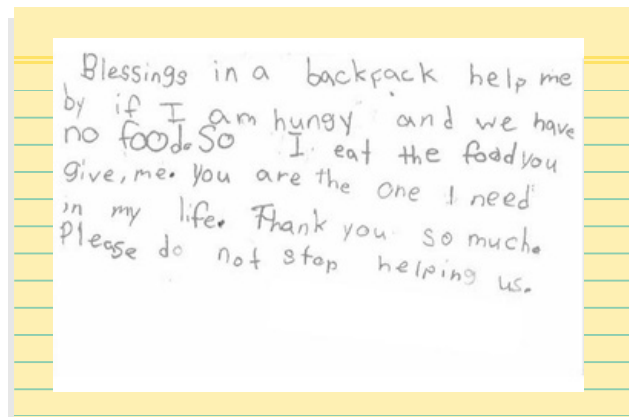 Blessings in a backpack help me
by if I am hungy and we have
no food. So I eat the food you
give, me. You are the one I need
in my life. Thank you so much.
Please do not stop helping us.